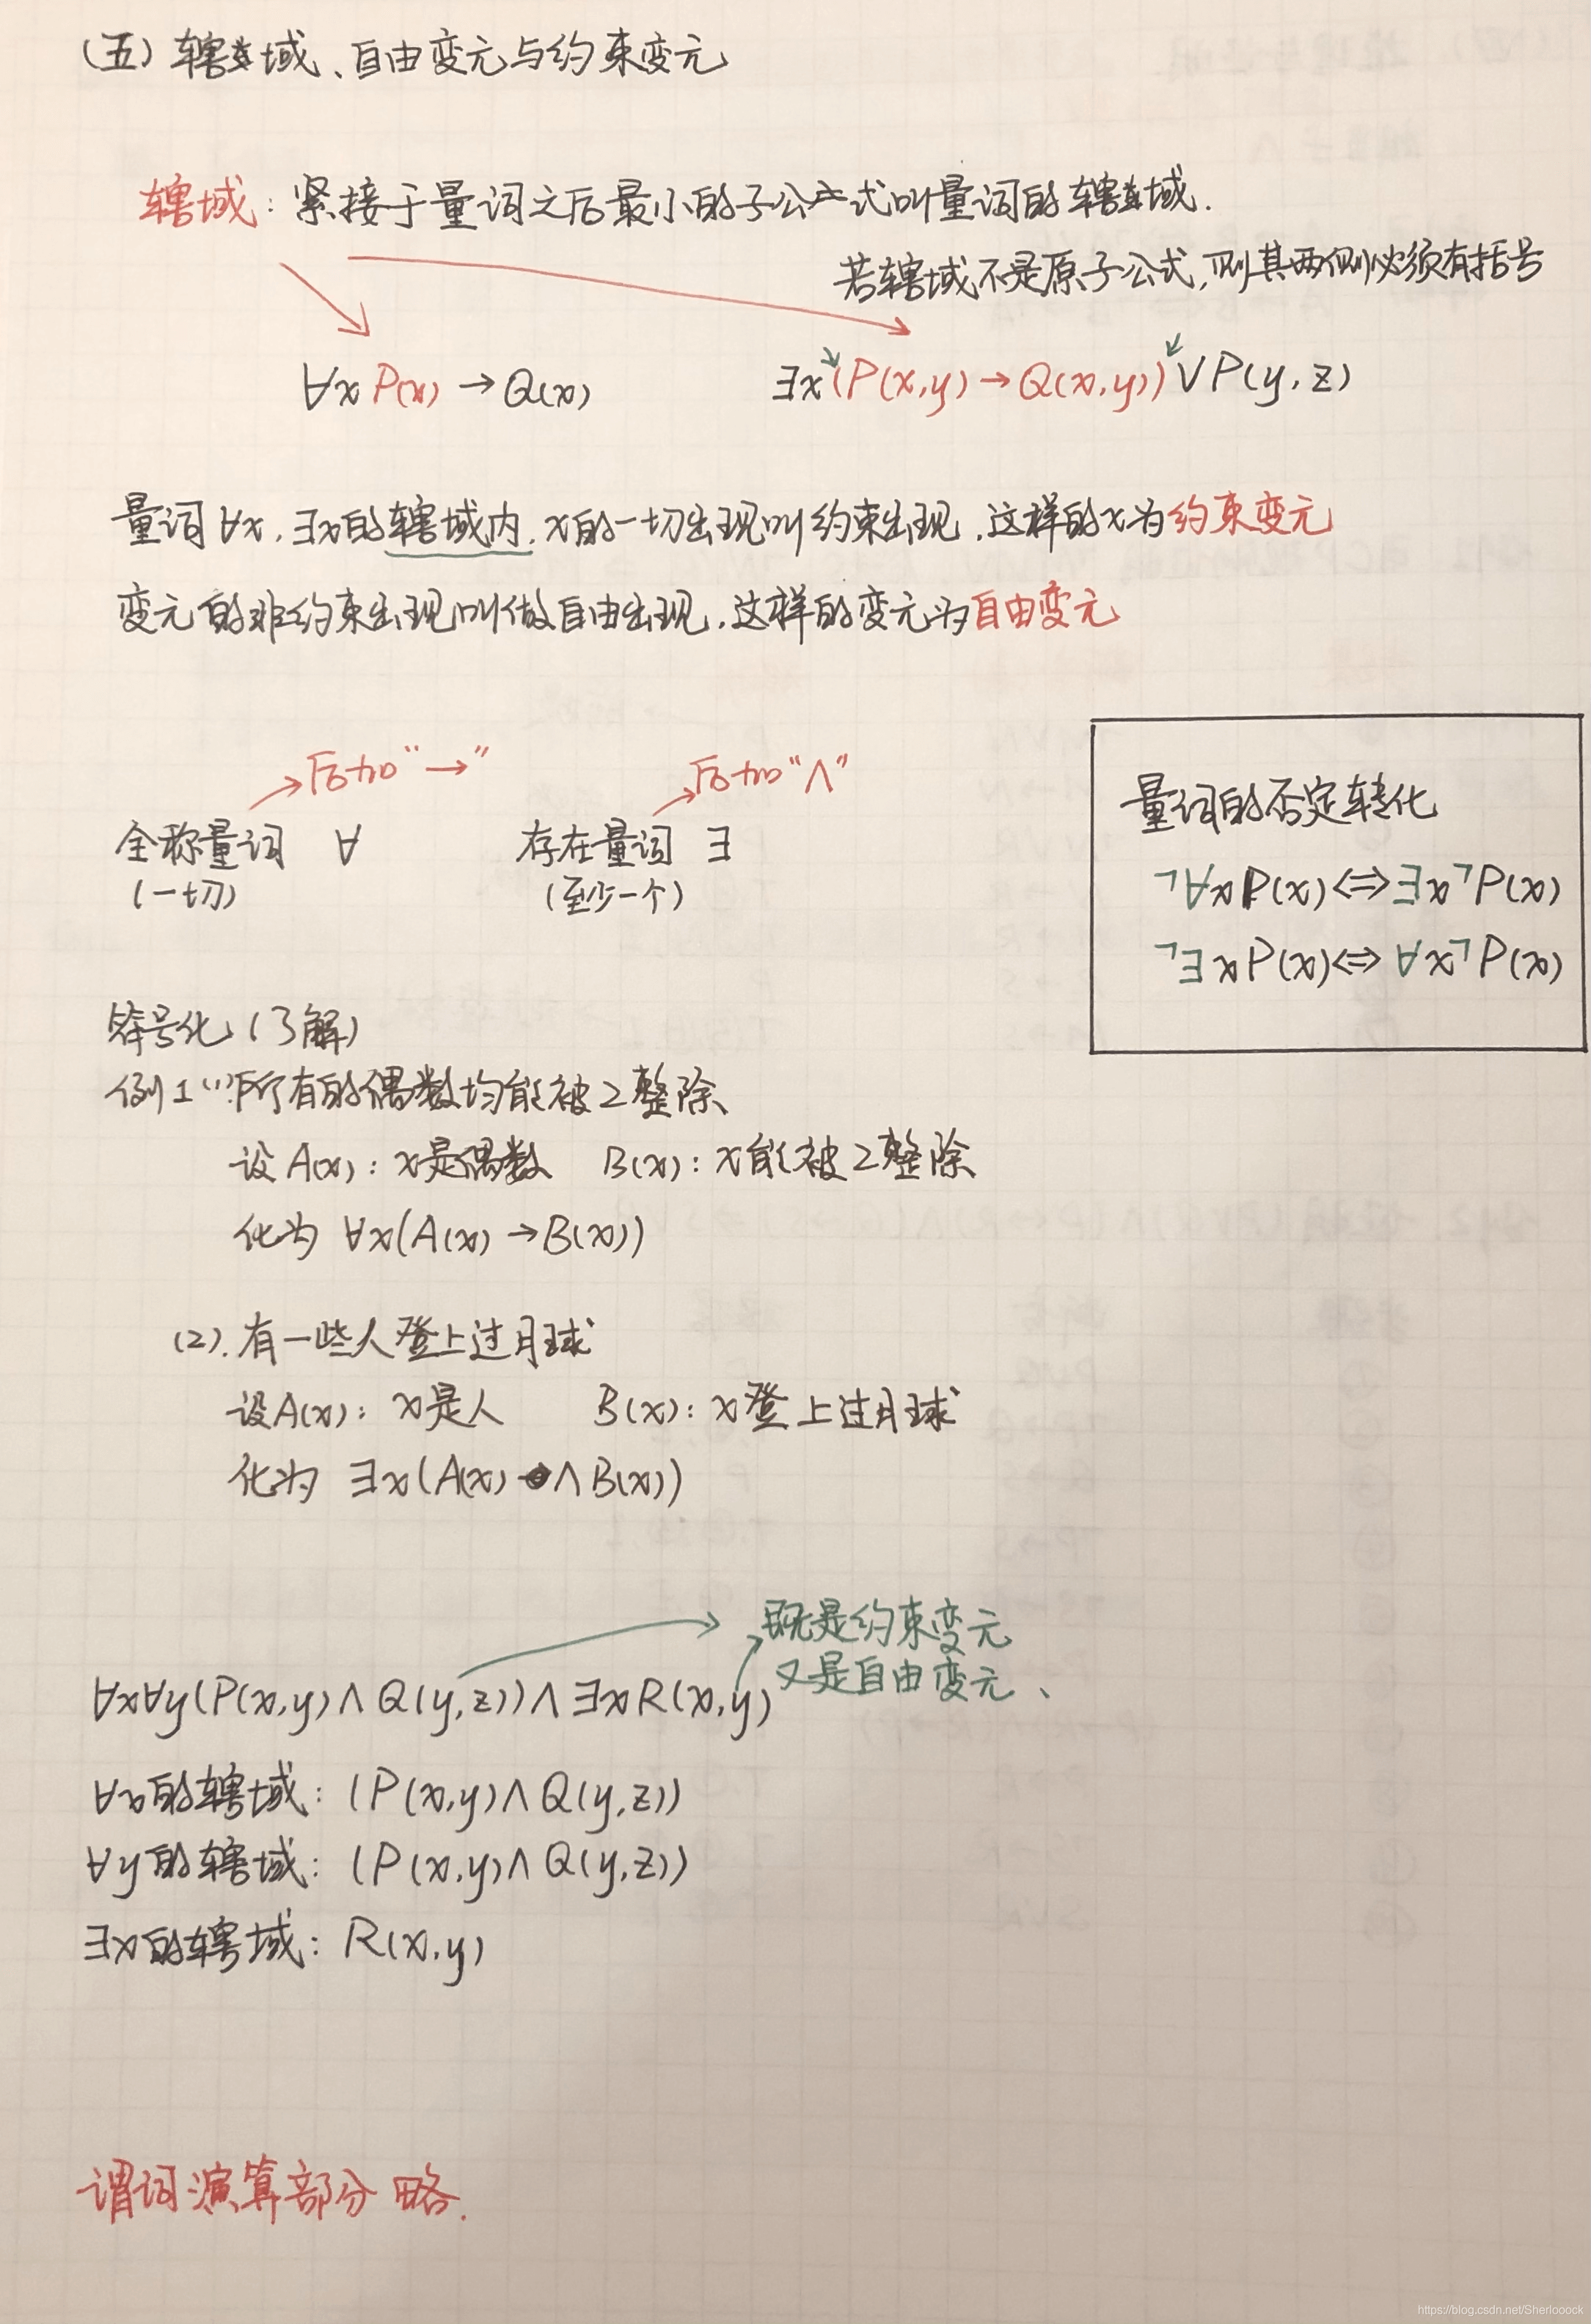 (五) 辖域、自由变元与约束变元
辖域：紧接于量词之后最小的子公式叫量词的辖域.
若辖域不是原子公式,则其两侧必须有括号
∀x P(x) → Q(x)
∃x(P(x,y) → Q(x,y))∨P(y,z)
量词∀x,∃x的辖域内,x的一切出现叫约束出现,这样的x为约束变元
变元的非约束出现叫做自由出现,这样的变元为自由变元
后加“→”
后加“∧”
全称量词 ∀
(一切)
存在量词 ∃
(至少一个)
量词的否定转化
¬∀xP(x)⇔∃x¬P(x)
¬∃xP(x)⇔∀x¬P(x)
符号化(了解)
例1(1)所有的偶数均能被2整除
设A(x)：x是偶数 B(x)：x能被2整除
化为 ∀x(A(x)→B(x))
(2).有一些人登上过月球
设A(x)：x是人 B(x)：x登上过月球
化为 ∃x(A(x)∧B(x))
既是约束变元
又是自由变元、
∀x∀y(P(x,y)∧Q(y,z))∧∃xR(x,y)
∀x的辖域：(P(x,y)∧Q(y,z))
∀y的辖域：(P(x,y)∧Q(y,z))
∃x的辖域：R(x,y)
谓词演算部分 略.
https://blog.csdn.net/Sherlooock